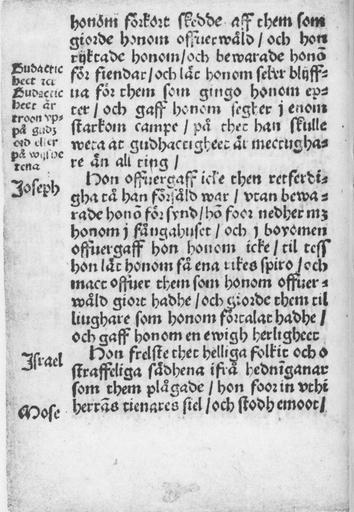 honōm förkort skedde aff them som
giorde honom offuerwåld / och hon
rijktade honom / och bewarade honō
för fiendar / och lät honom seker blijff-
ua för them som gingo honom ep-
ter / och gaff honom segher j enom
starkom campe / på thet han skulle
weta at gudhactigheet är mectugha-
re än all ting /
Hon offuergaff icke then retferdi-
gha tå han försåld war / vtan bewa-
rade honō för synd / hō foor nedher mz
honom j fångahuset / och j boyomen
offuergaff hon honom icke / til tess
hon lät honom få ena rikes spiro / och
mact offuer them som honom offuer-
wåld giort hadhe / och giorde them til
liughare som honom förtalat hadhe /
och gaff honom en ewigh herligheet
Hon frelste thet helliga folkit och o
straffeliga sådhena ifrå hedninganar
som them plågade / hon foor in vthi
herrās tienares siel / och stodh emoot /
troon vp-
på gudz
ord eller
Joseph
Israel
Mose